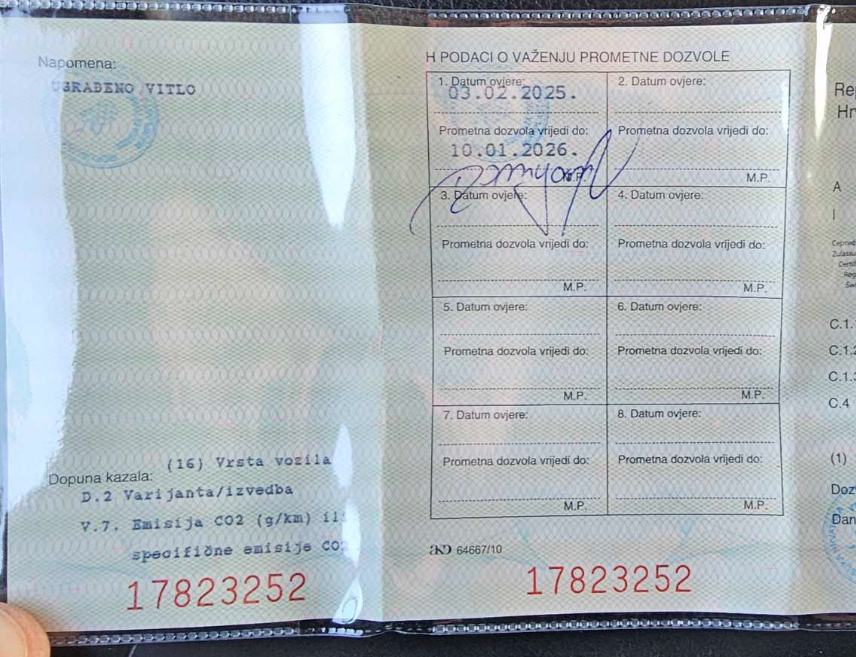 Napomena:
UGRAĐENO VITLO
Dopuna kazala: (16) Vrsta vozila
D.2 Varijanta/izvedba
V.7. Emisija CO2 (g/km) ili
specifične emisije CO2
17823252
H PODACI O VAŽENJU PROMETNE DOZVOLE
1. Datum ovjere:
03.02.2025.
Prometna dozvola vrijedi do:
10.01.2026.
M.P.
2. Datum ovjere:
Prometna dozvola vrijedi do:
M.P.
3. Datum ovjere:
Prometna dozvola vrijedi do:
M.P.
4. Datum ovjere:
Prometna dozvola vrijedi do:
M.P.
5. Datum ovjere:
Prometna dozvola vrijedi do:
M.P.
6. Datum ovjere:
Prometna dozvola vrijedi do:
M.P.
7. Datum ovjere:
Prometna dozvola vrijedi do:
M.P.
8. Datum ovjere:
Prometna dozvola vrijedi do:
M.P.
AKD 64667/10
17823252
A
C.1.
C.4
(1)